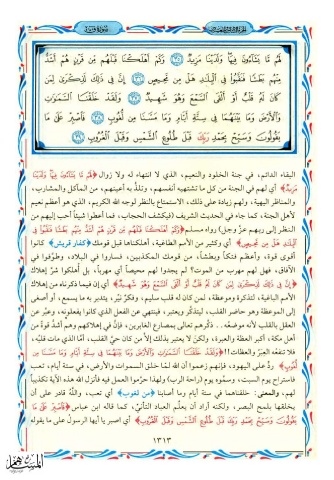 سورة ق
لَهُم مَّا يَشَاءُونَ فِيهَا وَلَدَيْنَا مَزِيدٌ ﴿٣٥﴾ وَكَمْ أَهْلَكْنَا قَبْلَهُم مِّن قَرْنٍ هُمْ أَشَدُّ
مِنْهُم بَطْشًا فَنَقَّبُوا فِي الْبِلَادِ هَلْ مِن مَّحِيصٍ ﴿٣٦﴾ إِنَّ فِي ذَٰلِكَ لَذِكْرَىٰ لِمَن
كَانَ لَهُ قَلْبٌ أَوْ أَلْقَى السَّمْعَ وَهُوَ شَهِيدٌ ﴿٣٧﴾ وَلَقَدْ خَلَقْنَا السَّمَاوَاتِ
وَالْأَرْضَ وَمَا بَيْنَهُمَا فِي سِتَّةِ أَيَّامٍ وَمَا مَسَّنَا مِن لُّغُوبٍ ﴿٣٨﴾ فَاصْبِرْ عَلَىٰ مَا
يَقُولُونَ وَسَبِّحْ بِحَمْدِ رَبِّكَ قَبْلَ طُلُوعِ الشَّمْسِ وَقَبْلَ الْغُرُوبِ ﴿٣٩﴾
البقاء الدائم، في جنة الخلود والنعيم، الذي لا انتهاء له ولا زوال ﴿لَهُم مَّا يَشَاءُونَ فِيهَا وَلَدَيْنَا
مَزِيدٌ﴾ أي لهم في الجنة من كل ما تشتهيه أنفسهم، وتلذُّ به أعينهم، من المآكل والمشارب،
والمناظر البهية، ولهم زيادة على ذلك، الاستمتاع بالنظر لوجه الله الكريم، الذي هو أعظم نعيم
لأهل الجنة، كما جاء في الحديث الشريف (فيكشف الحجاب، فما أعطوا شيئاً أحب إليهم من
النظر إلى ربهم عز وجل) رواه مسلم ﴿وَكَمْ أَهْلَكْنَا قَبْلَهُم مِّن قَرْنٍ هُمْ أَشَدُّ مِنْهُم بَطْشًا فَنَقَّبُوا فِي
الْبِلَادِ هَلْ مِن مَّحِيصٍ﴾ أي وكثير من الأمم الطاغية، أهلكناها قبل قومك «كفار قريش» كانوا
أقوى قوة، وأعظم فتكاً وبطشاً، من قومك المكذبين، فساروا في البلاد، وطوَّفوا في
الآفاق، فهل لهم مهرب من الموت؟ لم يجدوا لهم محيصاً أي مهرباً، بل أهلكوا شرَّ إهلاك
﴿إِنَّ فِي ذَٰلِكَ لَذِكْرَىٰ لِمَن كَانَ لَهُ قَلْبٌ أَوْ أَلْقَى السَّمْعَ وَهُوَ شَهِيدٌ﴾ أي إن فيما ذكرناه من إهلاك
الأمم الباغية، لتذكرة وموعظة، لمن كان له قلب سليم، وفكرٌ نيِّر، يتدبر به ما يسمع، أو أصغى
إلى الموعظة وهو حاضر القلب، ليتذكر ويعتبر، فينتهي عن الفعل الذي كانوا يفعلونه، وعبَّر عن
العقل بالقلب لأنه موضعه.. ذكَّرهم تعالى بمصارع الغابرين، فإنَّ في إهلاكهم وهم أشدُّ قوة من
أهل مكة، أكبر العظة والعبرة، ولكن لا يعتبر بذلك إلاَّ من كان حيَّ القلب، أمَّا الذي مات قلبُه،
فلا تنفعه العِبرُ والعظات!! ﴿وَلَقَدْ خَلَقْنَا السَّمَاوَاتِ وَالْأَرْضَ وَمَا بَيْنَهُمَا فِي سِتَّةِ أَيَّامٍ وَمَا مَسَّنَا مِن
لُّغُوبٍ﴾ ردٌّ على اليهود، فإنهم زعموا أن الله لمَّا خلق السموات والأرض، في ستة أيام، تعب
فاستراح يوم السبت، وسمَّوه يوم (راحة الرب) ولهذا حرَّموا العمل فيه فأنزل الله هذه الآية تكذيباً
لهم، والمعنى: خلقناهما في ستة أيام وما أصابنا ﴿مِن لُّغُوبٍ﴾ أي تعب، والله قادر على أن
يخلقها بلمح البصر، ولكنه أراد أن يعلِّم العباد التأنّي، كما قاله ابن عباس ﴿فَاصْبِرْ عَلَىٰ مَا
يَقُولُونَ وَسَبِّحْ بِحَمْدِ رَبِّكَ قَبْلَ طُلُوعِ الشَّمْسِ وَقَبْلَ الْغُرُوبِ﴾ أي اصبر يا أيها الرسول على ما يقوله
١٣١٣